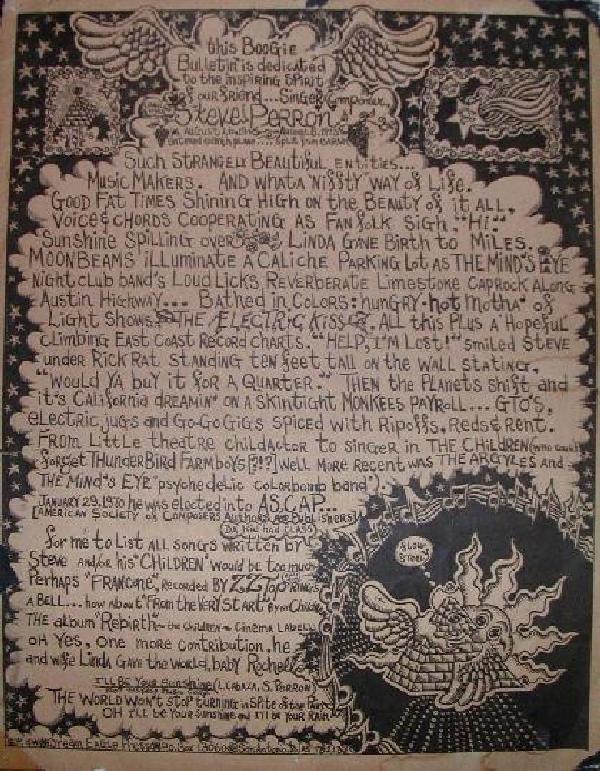 this Boogie
Bulletin is dedicated
to the inspiring Spirit
of our friend... Singer Composer
Steve! Perron
Such Strangely Beautiful entities...
Music Makers. And whata "Nifsty" way of Life.
Good Fat Times Shining High on the Beauty of it all.
Voice & Chords Cooperating as Fan folk sigh. "Hi."
Sunshine Spilling over Linda Gave Birth to Miles.
Moon Beams illuminate a Caliche Parking Lot as The Mind's Eye
Night club band's Loud Licks Reverberate Limestone Caprock Along
Austin Highway... Bathed in Colors: hungry-hot Motha' of
Light Shows. The Electric Kiss. All this Plus a Hopeful
climbing East Coast Record charts. "Help, I'm Lost!" smiled Steve
under Rick Rat standing ten feet tall on the wall stating,
"Would Ya buy it for a Quarter." Then the Planets shift and
it's California dreamin' on a skintight Monkees Payroll... GTO's,
electric jugs and Go-Go Gigs Spiced with Ripoffs, Reds & Rent.
From Little theatre child actor to singer in The Children (who could
forget Thunder Bird Farmboys [?!?] Well More Recent was The Argyles and
The Mind's Eye "psychedelic colorbomb band").
January 29, 1970 he was elected into A.S.CAP...
[American Society of Composers Authors and Publishers]
for me to List all songs written by
Steve and/or his "Children" would be too much
Perhaps "Francene", Recorded by ZZ Top Rings
a Bell... how about "From the Very Start" by the Children
The album "Rebirth" - the Children - Cinema Label
oh Yes, One more contribution, he
and wife Linda Gave the world, baby Rachel
I'll Be Your Sunshine (L. Cabaza, S. Perron)
The World Won't stop turning in Spite of the Pain
Oh I'll be Your Sunshine and I'll be Your Rain
Slow & Steady
Dream Eagle Press P.O. Box San Antonio